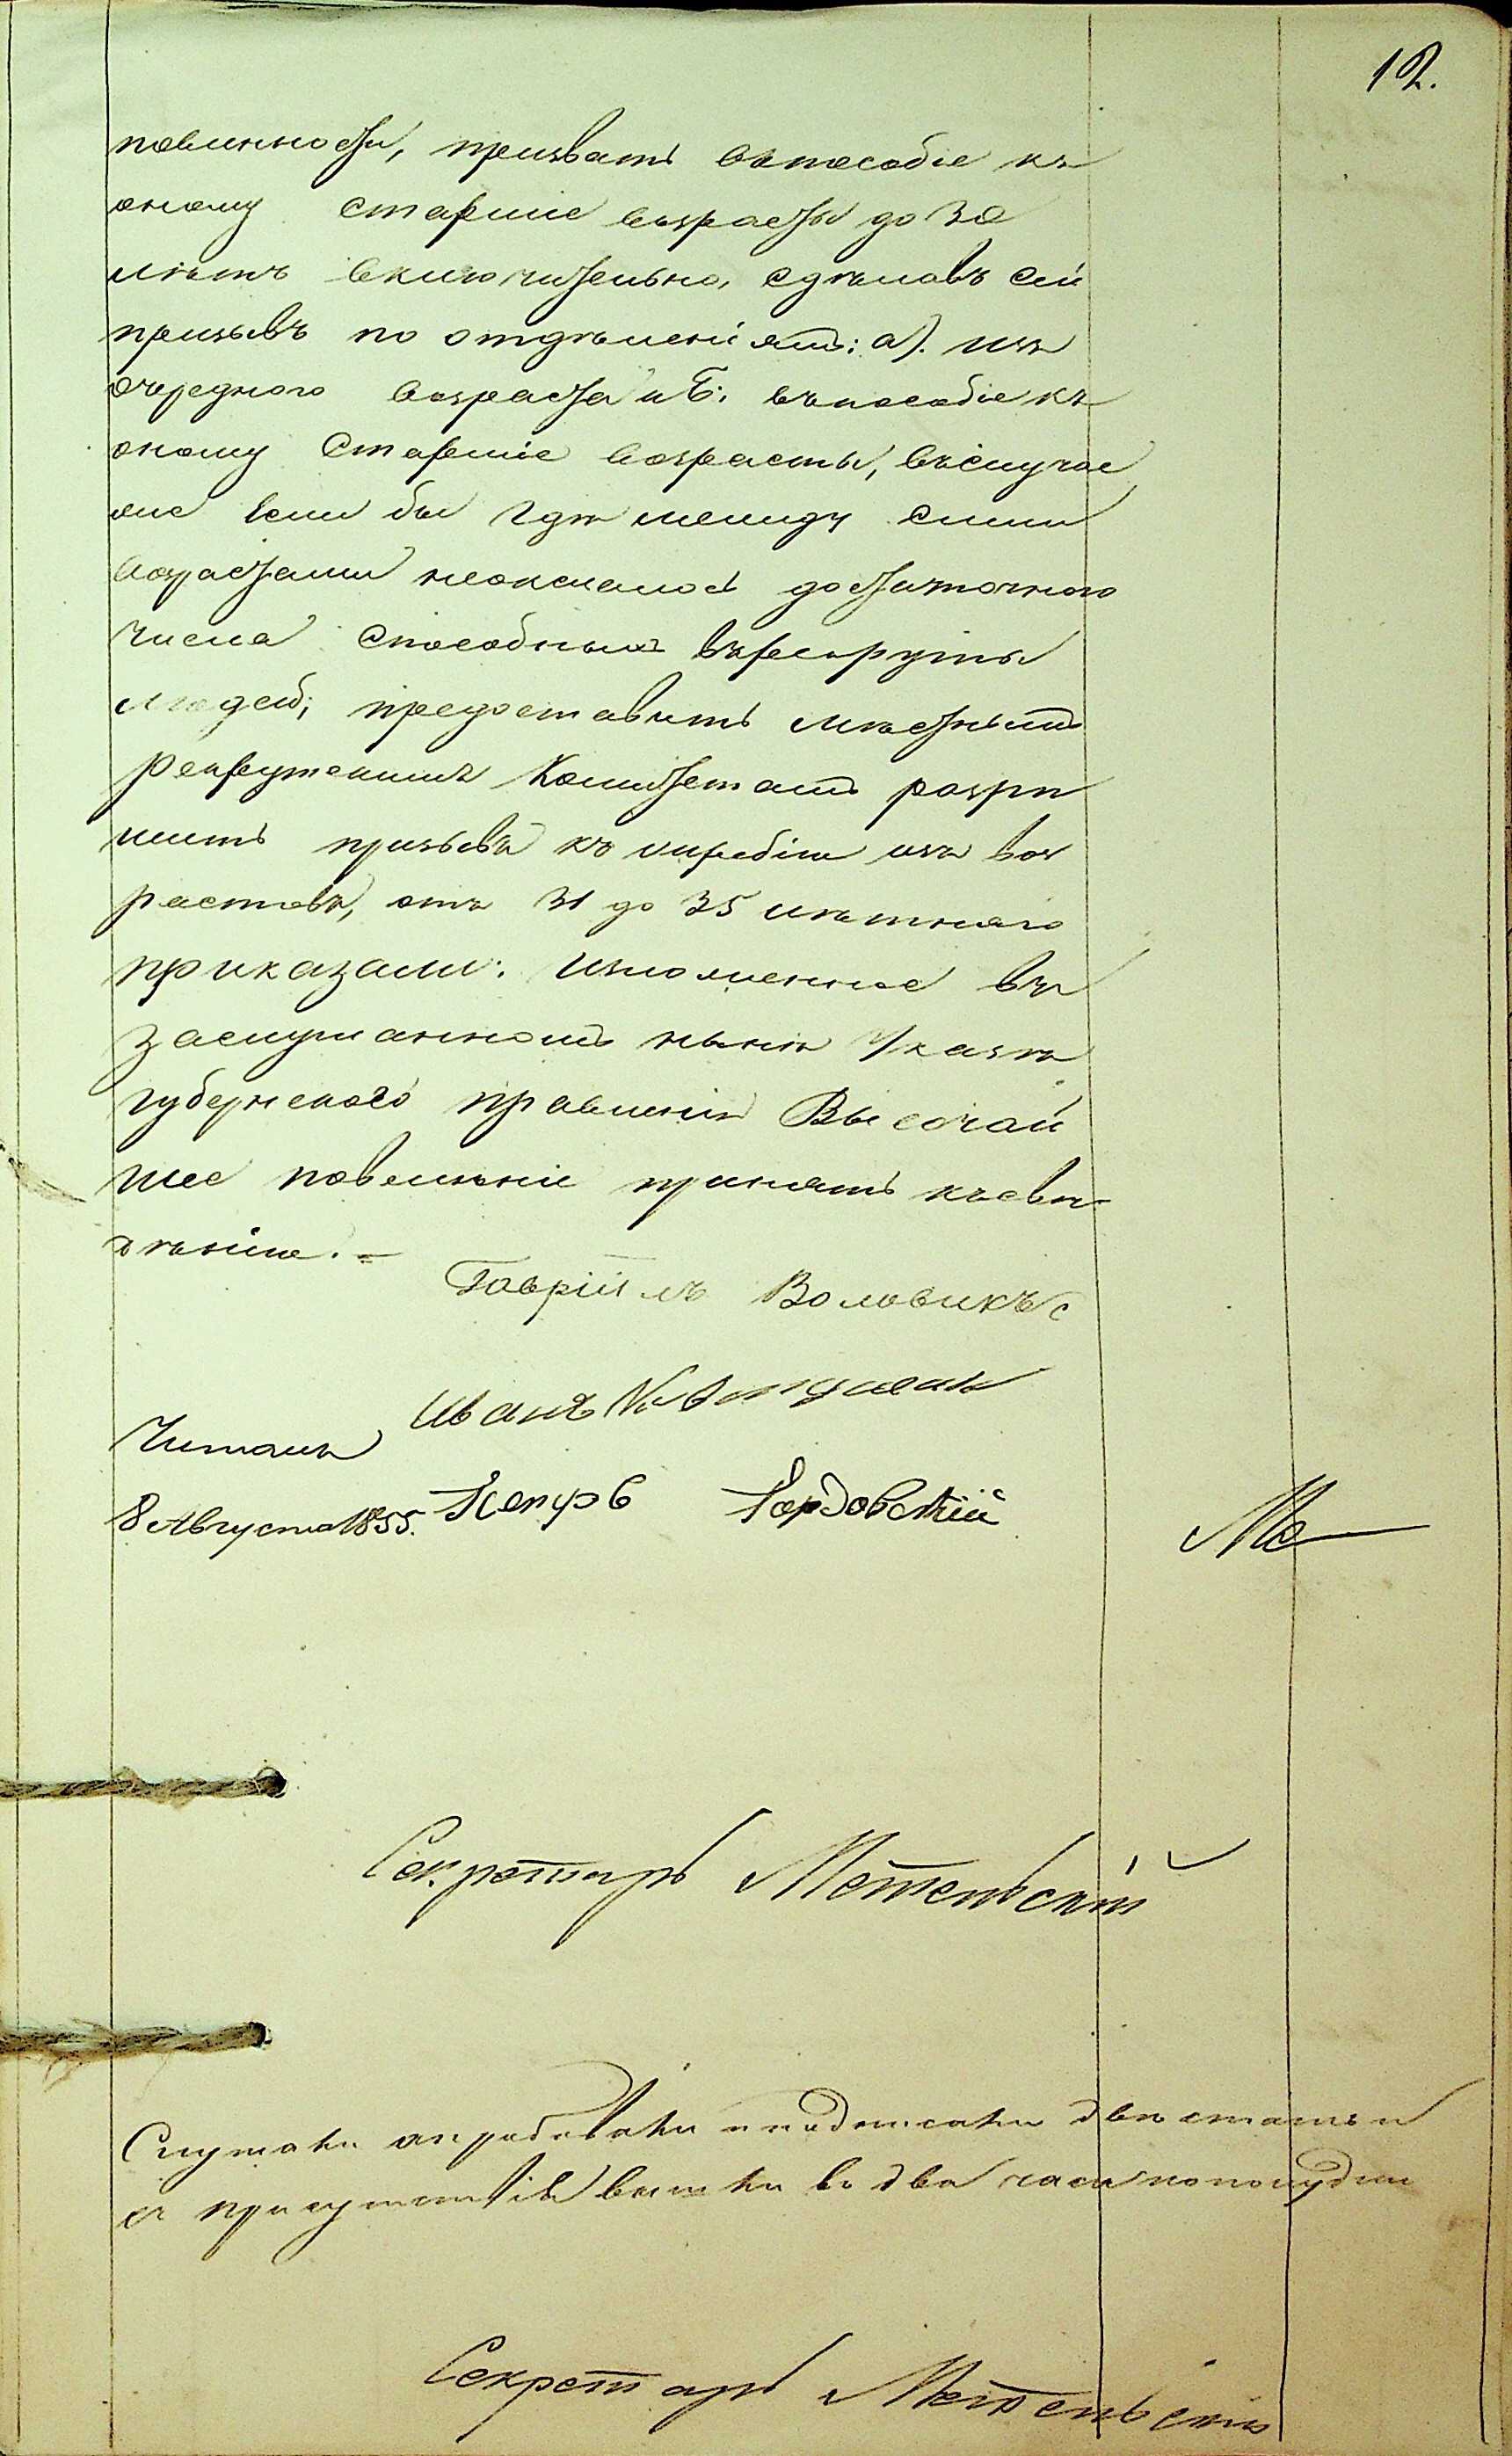 12.
повинности, призвать въпособіе къ
оному старшіе возрасты до 30
лѣтъ включительно, сдѣлавъ сей
призывъ по отдѣленіямъ: а). изъ
очереднаго возраста и Б: въпособіе къ
оному Старшіе возрасты, вслучае
же если бы гдѣ между сими
возрастами неоказалось достаточнаго
числа способныхъ врекруты
людей; предоставить мѣстнымъ
рекрутскимъ Комитетамъ разрѣ
шить призывъ къ жребію изъ воз
растовъ, отъ 31 до 35 лѣтняго
приказали: Изложенное въ
заслушанномъ нынѣ Указѣ
губернскаго правленія Высочай
шее повелѣніе принять късвѣ
дѣнію. =
Гавріилъ Воловикъ
Иванъ
Читалъ
8 Августа 1855.
Секретарь Метельскій
Слушали апробовали и подписали двѣ статьи
изъ присутствія вышли въ два часа пополудни
Секретарь Метельскій